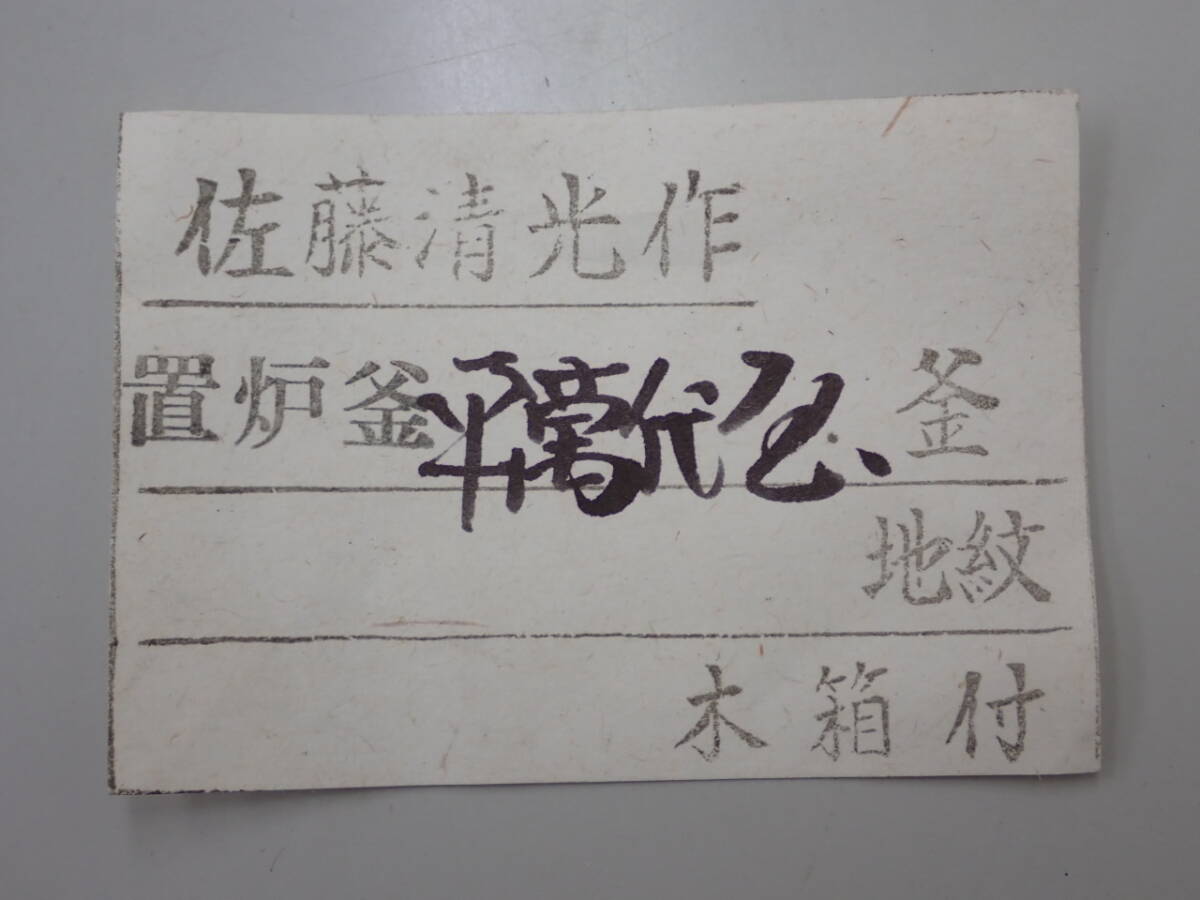 佐藤清光作
置炉釜 平萬代屋 釜
地紋
木箱付